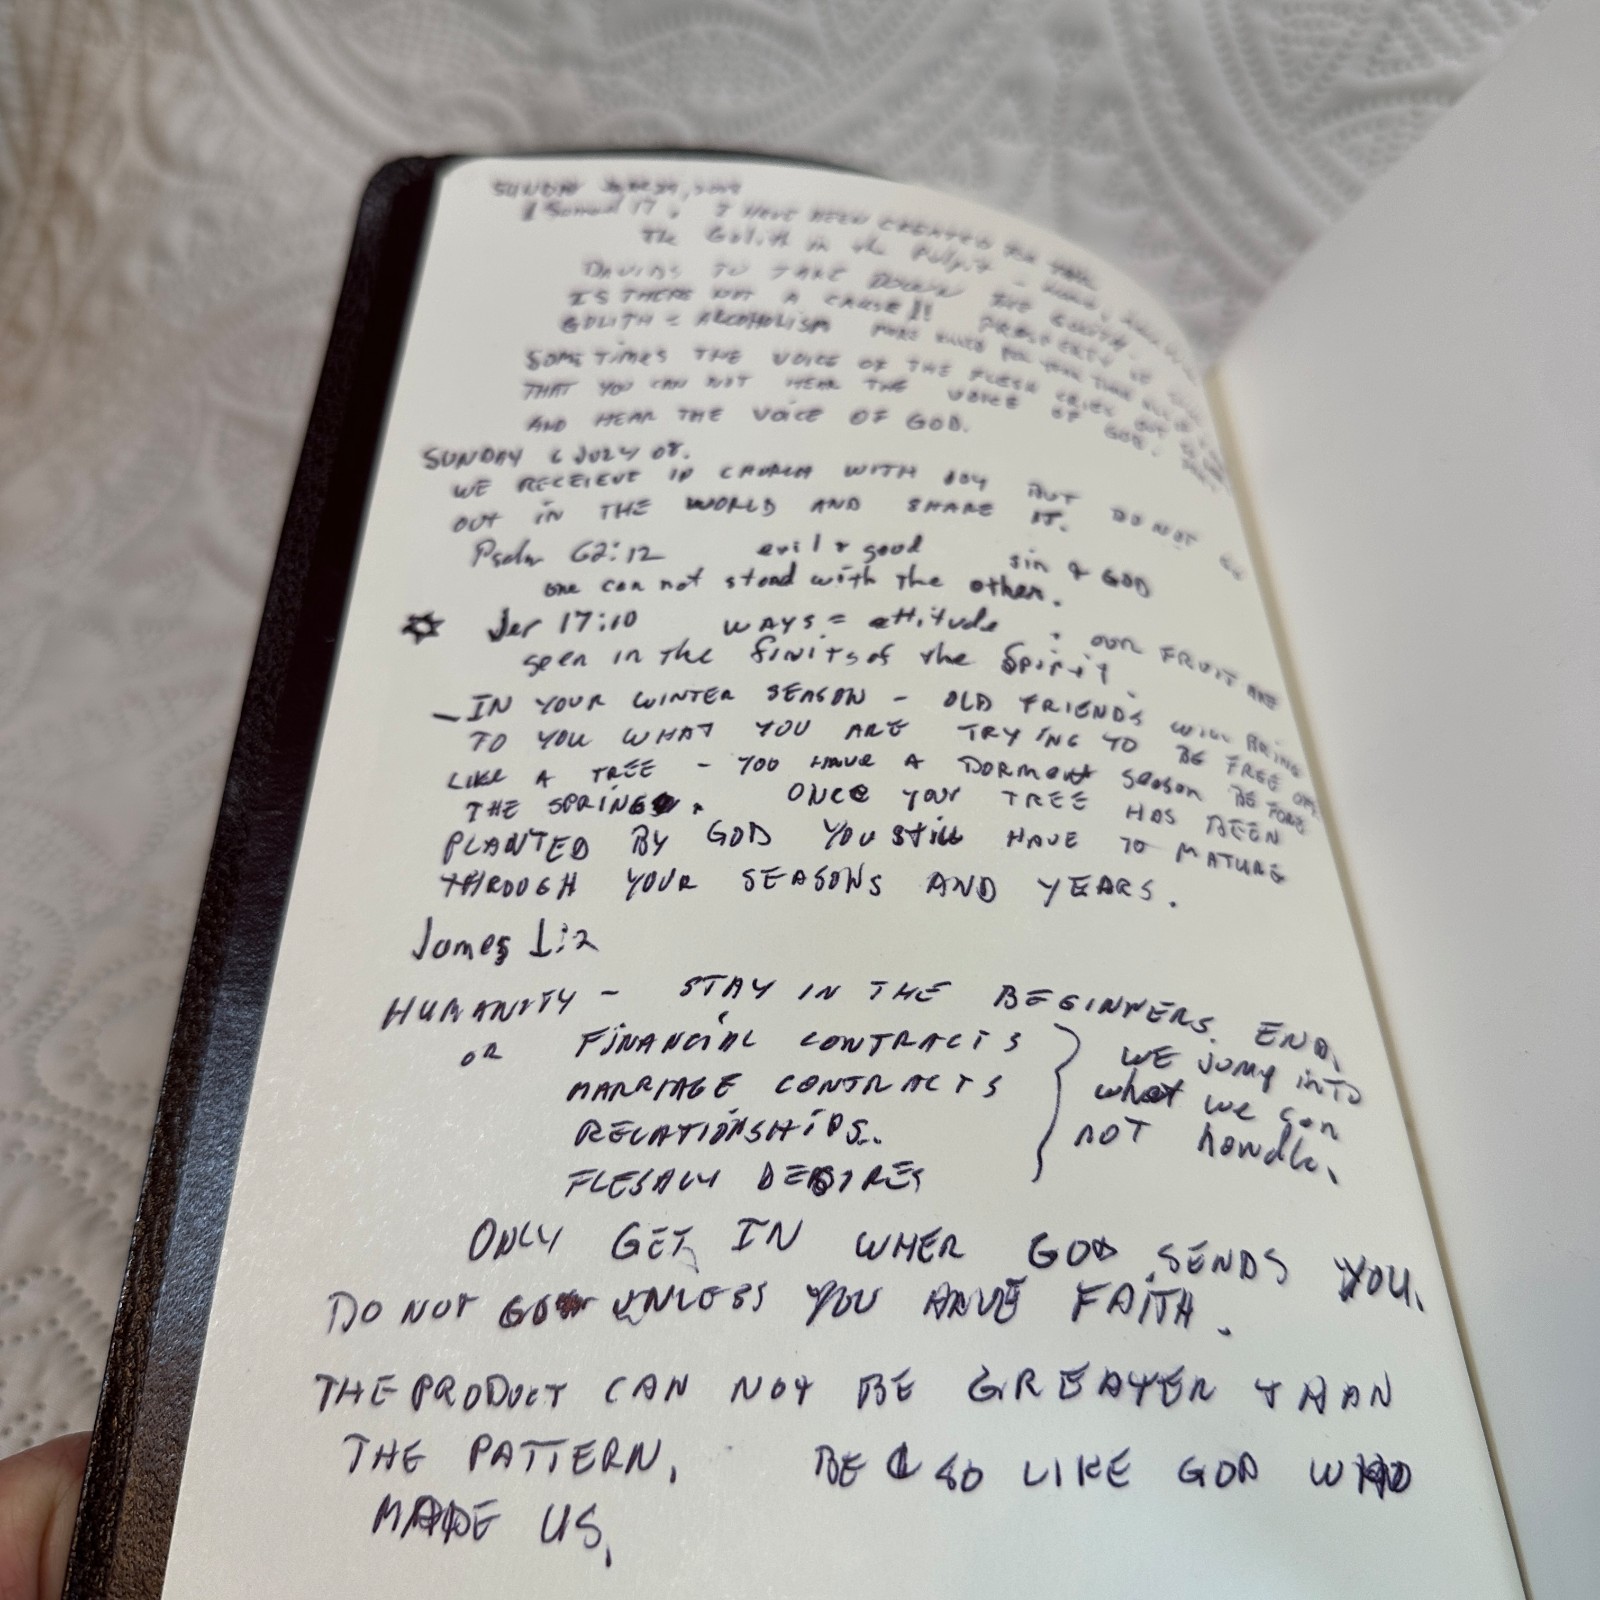 SUNDAY
1 Samuel 17, I HAVE BEEN CREATED FOR
The Golith in the Pulpit -
DAVIDS TO TAKE DOWN THE GOLITH.
IS THERE NOT A CAUSE!! PROSPERITY
GOLITH = ALCOHOLISM
SOMETIMES THE VOICE OF THE FLESH CRIES OUT SO
THAT YOU CAN NOT HEAR THE VOICE OF GOD.
AND HEAR THE VOICE OF GOD.
SUNDAY 6 JULY 08.
WE RECEIEVE IN CHURCH WITH JOY BUT DO NOT GO
OUT IN THE WORLD AND SHARE IT.
Psalm 62:12 evil & good sin & GOD
one can not stand with the other.
Jer 17:10 WAYS = attitude . OUR FRUIT ARE
seen in the finits of the Spirit.
- IN YOUR WINTER SEASON - OLD FRIENDS WILL BRING
TO YOU WHAT YOU ARE TRYING TO BE FREE OF.
LIKE A TREE - YOU HAVE A DORMENT season BEFORE
THE SPRING. ONCE your TREE HAS BEEN
PLANTED BY GOD YOU still HAVE TO MATURE
THROUGH YOUR SEASONS AND YEARS.
James 1:2
HUMANITY - STAY IN THE BEGINNERS END.
OR FINANCIAL CONTRACTS WE jump inTO
MARRIAGE CONTRACTS what we can
RELATIONSHIPS.. NOT handle.
FLESHLY DESIRES
ONLY GET IN WHER GOD SENDS YOU.
DO NOT GO UNLESS YOU HAVE FAITH.
THE PRODUCT CAN NOT BE GREATER THAN
THE PATTERN. BE SO LIKE GOD WHO
MADE US.